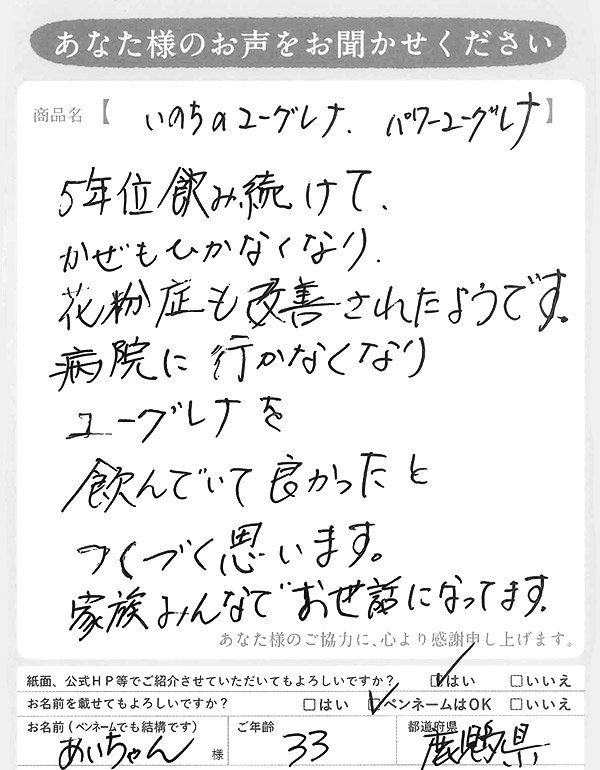 あなた様のお声をお聞かせください
商品名【 いのちのユーグレナ. パワーユーグレナ】
5年位飲み続けて、
かぜもひかなくなり、
花粉症も改善されたようです。
病院に行かなくなり
ユーグレナを
飲んでいて良かったと
つくづく思います。
家族みんなでお世話になってます。
あなた様のご協力に、心より感謝申し上げます。
紙面、公式HP等でご紹介させていただいてもよろしいですか? ☑はい □いいえ
お名前を載せてもよろしいですか? □はい ☑ペンネームはOK □いいえ
お名前(ペンネームでも結構です) ご年齢 都道府県
めいちゃん 様 33 鹿児島県